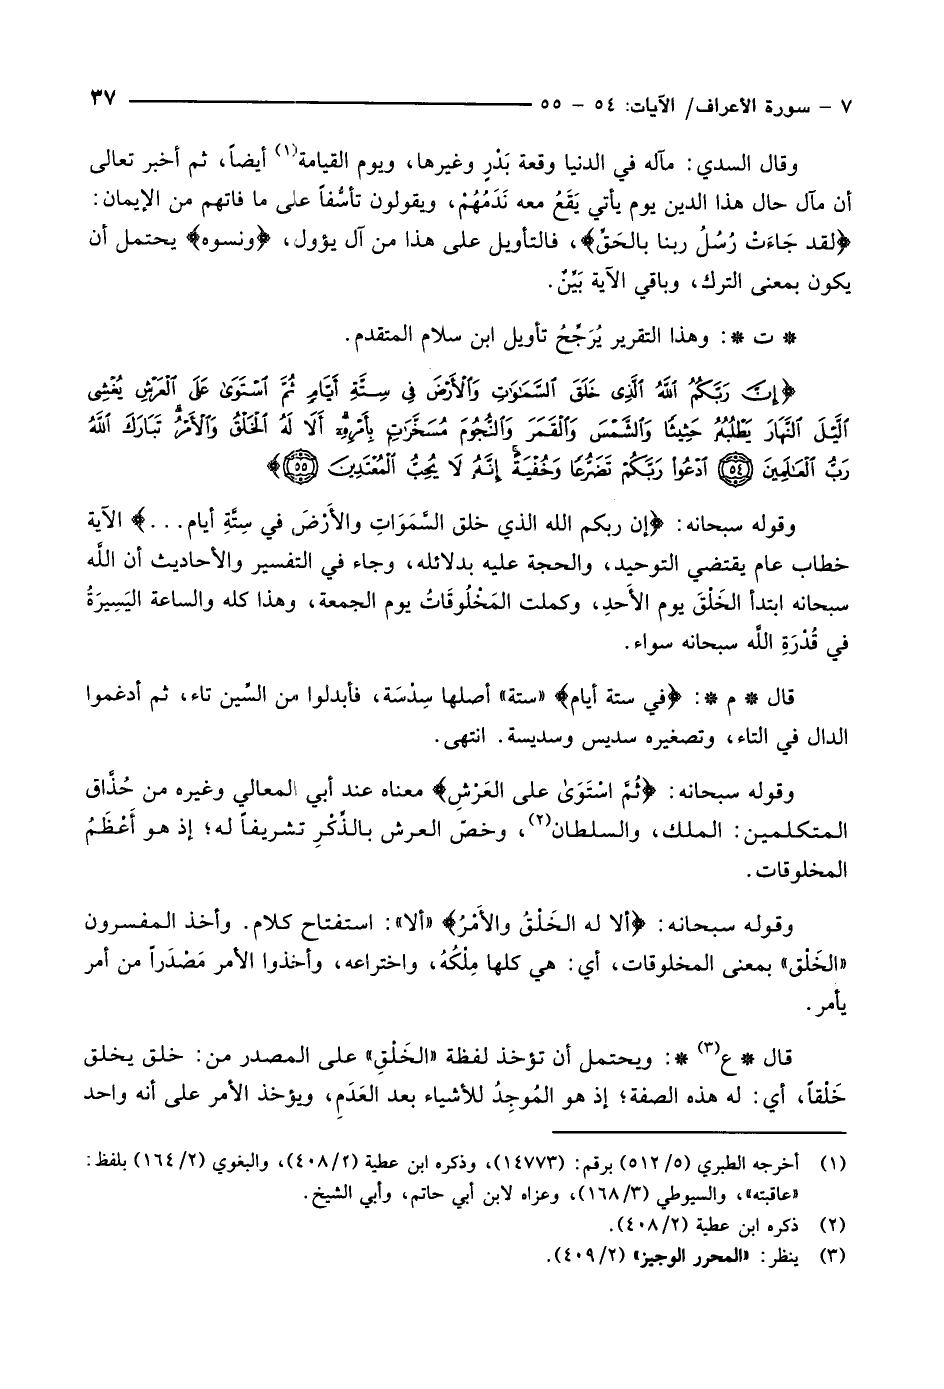 ٧ - سورة الأعراف/ الآيات: ٥٤ - ٥٥ ٣٧
وقال السدي: مآله في الدنيا وقعة بَدْرٍ وغيرها، ويوم القيامة(١) أيضاً، ثم أخبر تعالى
أن مآل حال هذا الدين يوم يأتي يَقَعُ معه نَدَمُهُمْ، ويقولون تأسُّفاً على ما فاتهم من الإيمان:
﴿لقد جَاءَتْ رُسُلُ ربنا بالحَقِّ﴾، فالتأويل على هذا من آل يؤول، ﴿ونسوه﴾ يحتمل أن
يكون بمعنى الترك، وباقي الآية بَيِّنٌ.
* ت *: وهذا التقرير يُرَجِّحُ تأويل ابن سلام المتقدم.
﴿إِنَّ رَبَّكُمُ اللَّهُ الَّذِى خَلَقَ السَّمَٰوَٰتِ وَالْأَرْضَ فِى سِتَّةِ أَيَّامٍ ثُمَّ اسْتَوَىٰ عَلَى الْعَرْشِ يُغْشِى
الَّيْلَ النَّهَارَ يَطْلُبُهُ حَثِيثًا وَالشَّمْسَ وَالْقَمَرَ وَالنُّجُومَ مُسَخَّرَٰتٍ بِأَمْرِهِۦٓ أَلَا لَهُ الْخَلْقُ وَالْأَمْرُ تَبَارَكَ اللَّهُ
رَبُّ الْعَٰلَمِينَ ٥٤ ادْعُوا رَبَّكُمْ تَضَرُّعًا وَخُفْيَةً إِنَّهُ لَا يُحِبُّ الْمُعْتَدِينَ ٥٥﴾
وقوله سبحانه: ﴿إن ربكم الله الذي خلق السَّمَوَاتِ والأَرْضَ في سِتَّةِ أيام...﴾ الآية
خطاب عام يقتضي التوحيد، والحجة عليه بدلائله، وجاء في التفسير والأحاديث أن اللَّه
سبحانه ابتدأ الخَلْقَ يوم الأَحدِ، وكملت المَخْلُوقَاتُ يوم الجمعة، وهذا كله والساعة اليَسِيرَةُ
في قُدْرَةِ اللَّه سبحانه سواء.
قال * م *: ﴿في ستة أيام﴾ «ستة» أصلها سِدْسَة، فأبدلوا من السِّين تاء، ثم أدغموا
الدال في التاء، وتصغيره سديس وسديسة. انتهى.
وقوله سبحانه: ﴿ثُمَّ اسْتَوَىٰ على العَرْشِ﴾ معناه عند أبي المعالي وغيره من حُذَّاق
المتكلمين: الملك، والسلطان(٢)، وخصّ العرش بالذِّكْرِ تشريفاً له؛ إذ هو أَعْظَمُ
المخلوقات.
وقوله سبحانه: ﴿ألا له الخَلْقُ والأَمْرُ﴾ «ألا»: استفتاح كلام. وأخذ المفسرون
«الخَلْق» بمعنى المخلوقات، أي: هي كلها مِلْكُهُ، واختراعه، وأخذوا الأمر مَصْدَراً من أمر
يأمر.
قال * ع(٣) *: ويحتمل أن تؤخذ لفظة «الخَلْقِ» على المصدر من: خلق يخلق
خَلْقاً، أي: له هذه الصفة؛ إذ هو المُوجِدُ للأشياء بعد العَدَمِ، ويؤخذ الأمر على أنه واحد
(١) أخرجه الطبري (٥/ ٥١٢) برقم: (١٤٧٧٣)، وذكره ابن عطية (٢/ ٤٠٨)، والبغوي (٢/ ١٦٤) بلفظ:
«عاقبته»، والسيوطي (٣/ ١٦٨)، وعزاه لابن أبي حاتم، وأبي الشيخ.
(٢) ذكره ابن عطية (٢/ ٤٠٨).
(٣) ينظر: «المحرر الوجيز» (٢/ ٤٠٩).